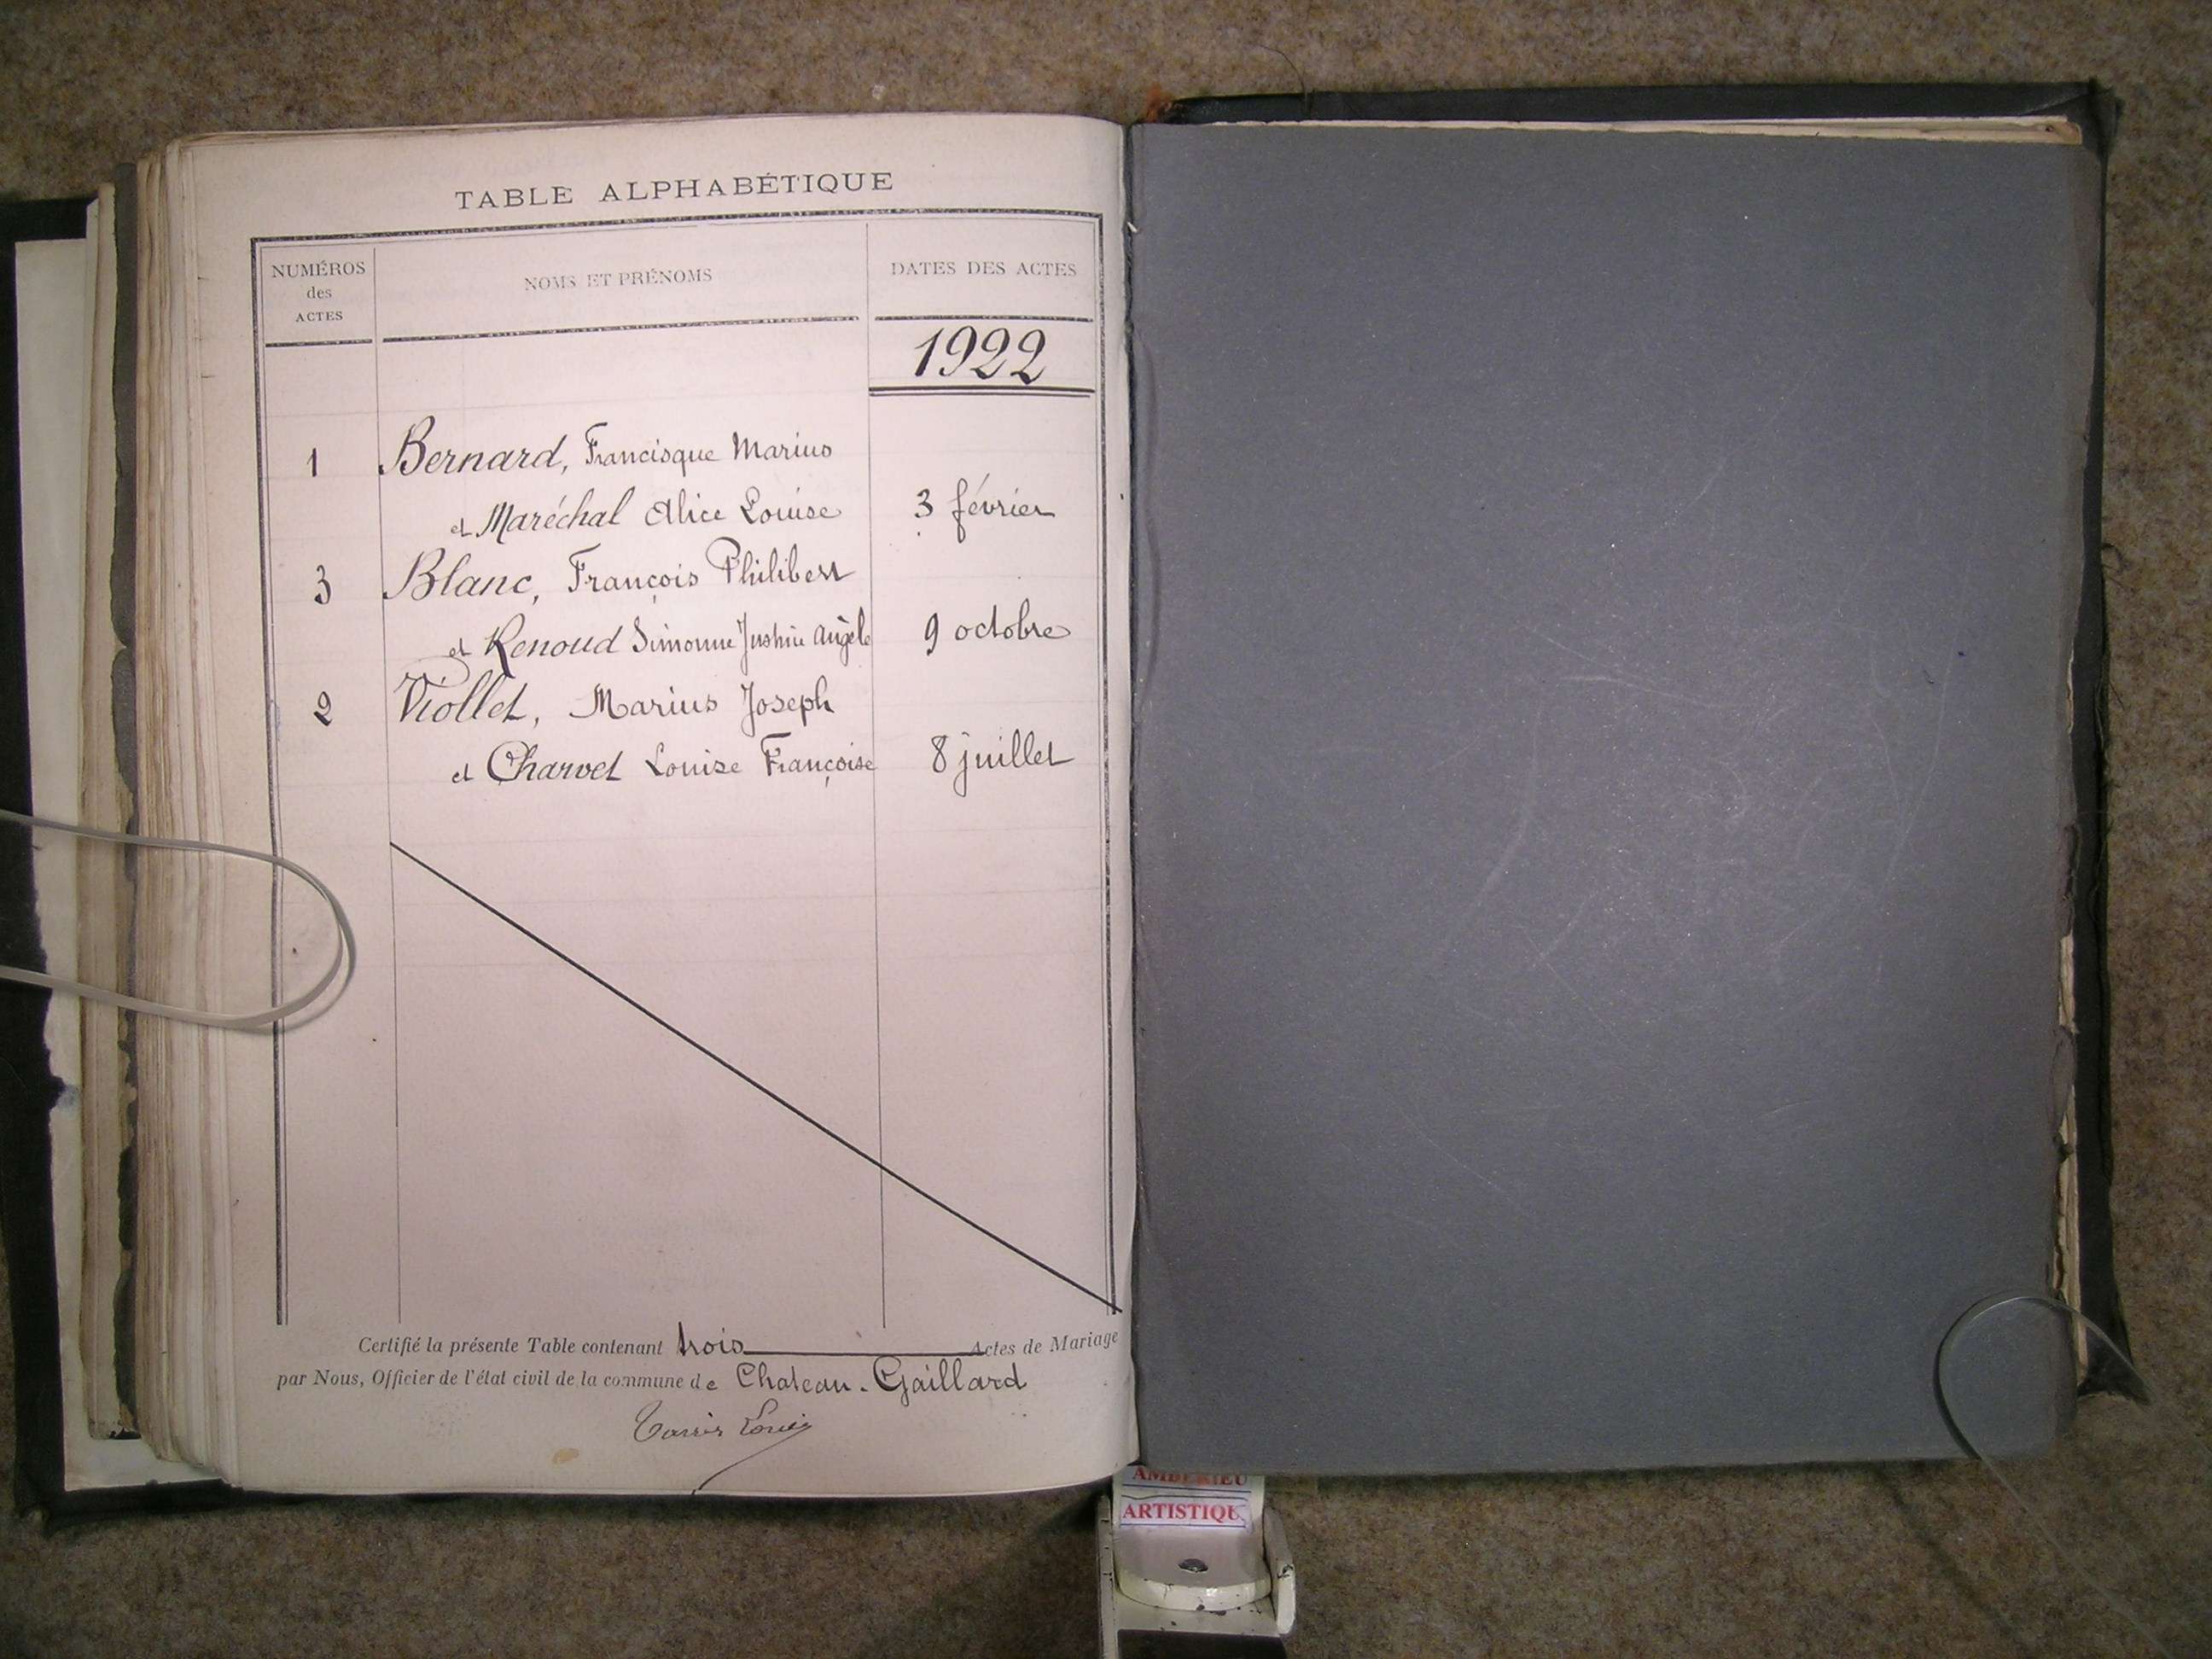 TABLE ALPHABÉTIQUE
NUMÉROS
des
ACTES
NOMS ET PRÉNOMS
DATES DES ACTES
1922
1 Bernard, Francisque Marius
et Maréchal Alice Louise 3 février
3 Blanc, François Philibert
et Renoud Simonne Justine Angèle 9 octobre
2 Viollet, Marius Joseph
et Charvet Louise Françoise 8 juillet
Certifié la présente Table contenant trois Actes de Mariage
par Nous, Officier de l'état civil de la commune de Chateau-Gaillard
Louis
AMBERIEU
ARTISTIQU